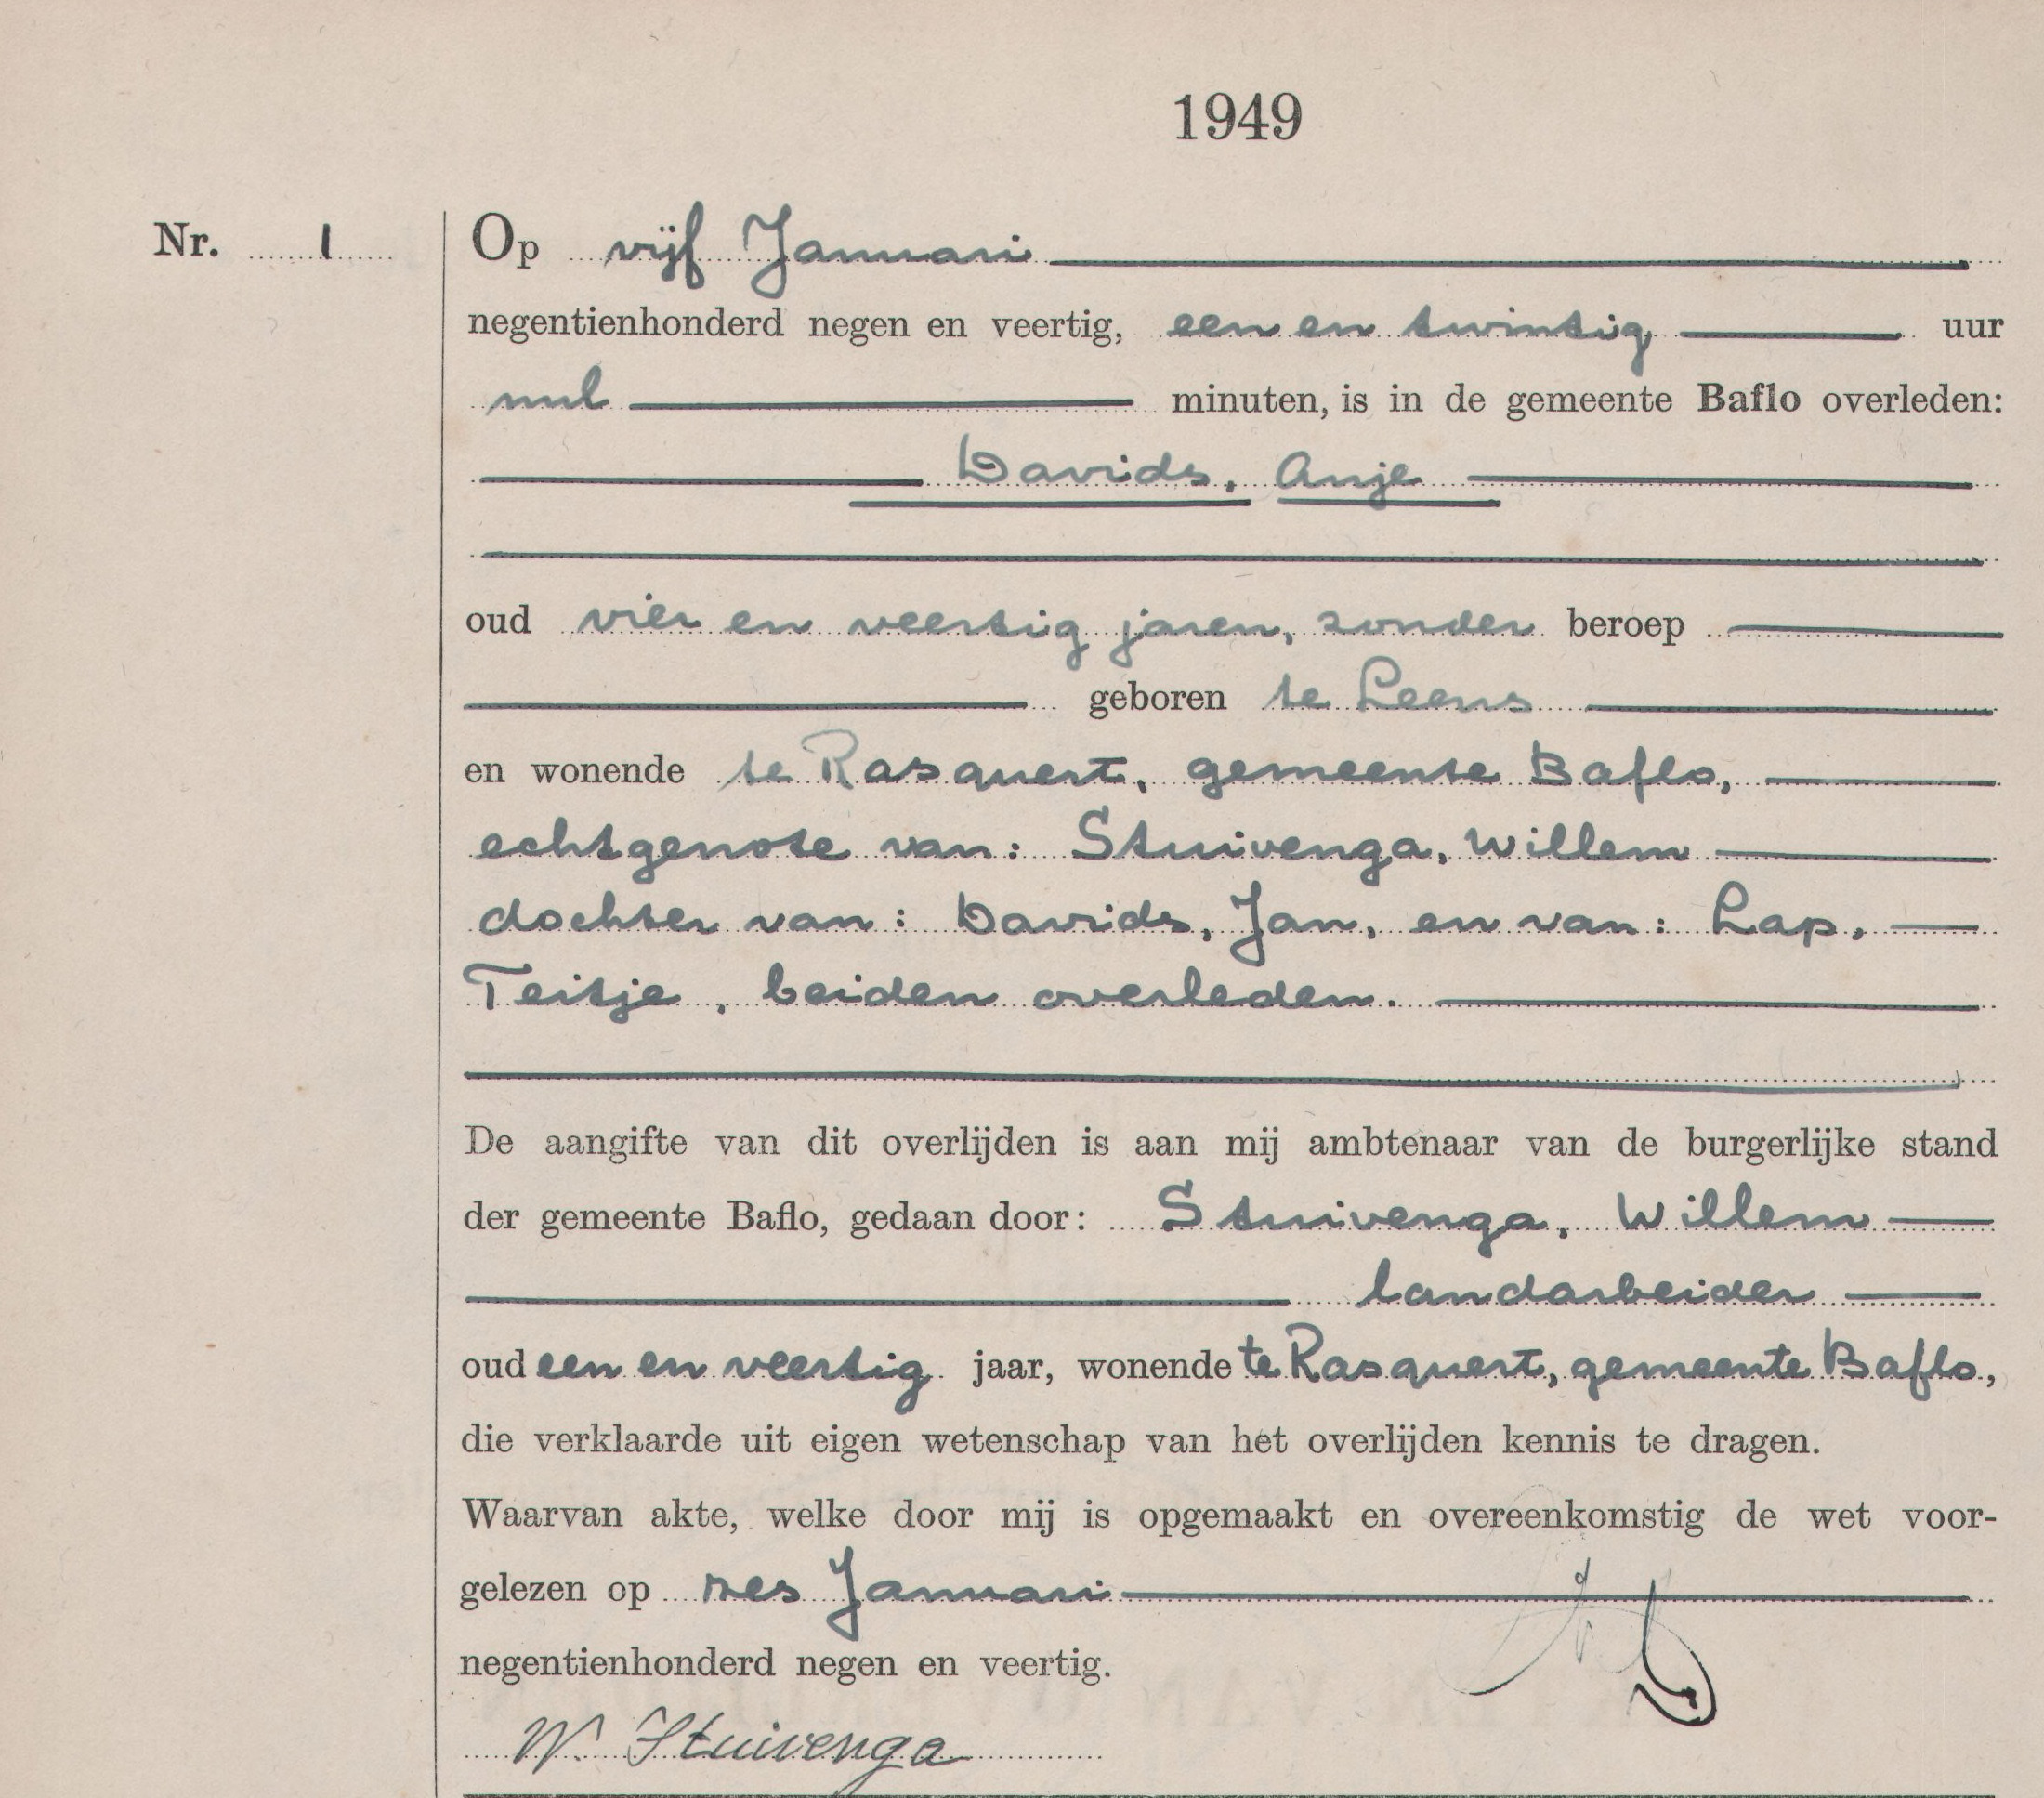 1949
Nr. 1
Op vijf Januari
negentienhonderd negen en veertig, een en twintig uur
nul minuten, is in de gemeente Baflo overleden:
Davids, Anje
oud vier en veertig jaren, zonder beroep
geboren te Leens
en wonende te Rasquert, gemeente Baflo,
echtgenote van: Stuivenga, Willem
dochter van: Davids, Jan, en van: Lap,
Teitje, beiden overleden.
De aangifte van dit overlijden is aan mij ambtenaar van de burgerlijke stand
der gemeente Baflo, gedaan door: Stuivenga, Willem
landarbeider
oud een en veertig jaar, wonende te Rasquert, gemeente Baflo,
die verklaarde uit eigen wetenschap van het overlijden kennis te dragen.
Waarvan akte, welke door mij is opgemaakt en overeenkomstig de wet voor-
gelezen op zes Januari
negentienhonderd negen en veertig.
W. Stuivenga